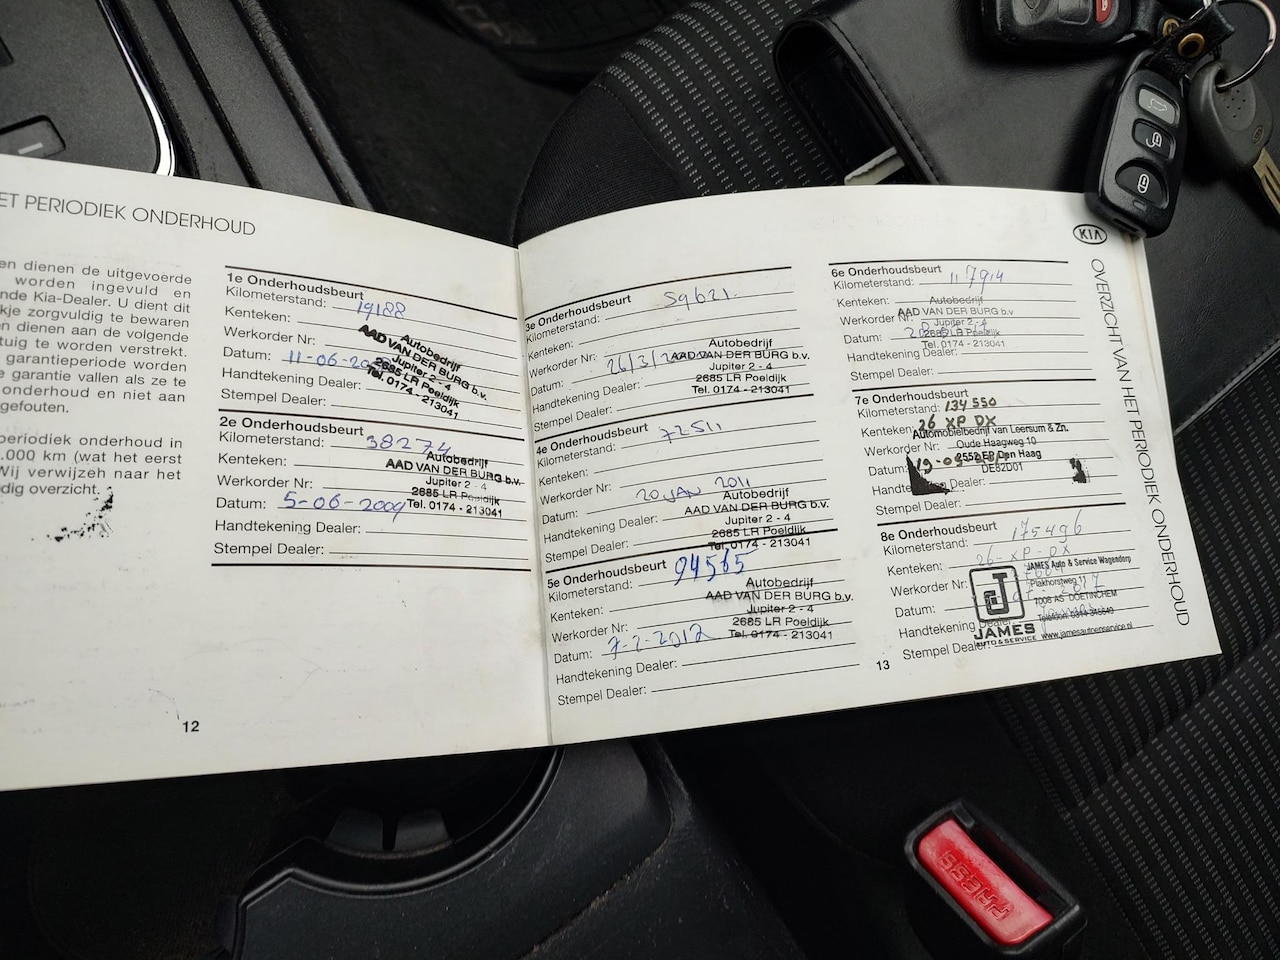 ET PERIODIEK ONDERHOUD
en dienen de uitgevoerde
worden ingevuld en
nde Kia-Dealer. U dient dit
kje zorgvuldig te bewaren
n dienen aan de volgende
tuig te worden verstrekt.
garantieperiode worden
e garantie vallen als ze te
onderhoud en niet aan
gefouten.
periodiek onderhoud in
.000 km (wat het eerst
Wij verwijzeh naar het
dig overzicht.
1e Onderhoudsbeurt
Kilometerstand: 19188
Kenteken:
Werkorder Nr:
Datum: 11-06-
Handtekening Dealer:
Stempel Dealer:
Autobedrijf
AAD VAN DER BURG b.v.
Jupiter 2 - 4
2685 LR Poeldijk
Tel. 0174 - 213041
2e Onderhoudsbeurt
Kilometerstand: 38274
Kenteken:
Werkorder Nr:
Datum: 5-06-2009
Handtekening Dealer:
Stempel Dealer:
Autobedrijf
AAD VAN DER BURG b.v.
Jupiter 2 - 4
2685 LR Poeldijk
Tel. 0174 - 213041
12
3e Onderhoudsbeurt
Kilometerstand: 59621.
Kenteken:
Werkorder Nr:
Datum: 26/3/
Handtekening Dealer:
Stempel Dealer:
Autobedrijf
AAD VAN DER BURG b.v.
Jupiter 2 - 4
2685 LR Poeldijk
Tel. 0174 - 213041
4e Onderhoudsbeurt
Kilometerstand: 72511
Kenteken:
Werkorder Nr:
Datum: 20 JAN 2011
Handtekening Dealer:
Stempel Dealer:
Autobedrijf
AAD VAN DER BURG b.v.
Jupiter 2 - 4
2685 LR Poeldijk
Tel. 0174 - 213041
5e Onderhoudsbeurt
Kilometerstand: 94565
Kenteken:
Werkorder Nr:
Datum: 7-2-2012
Handtekening Dealer:
Stempel Dealer:
Autobedrijf
AAD VAN DER BURG b.v.
Jupiter 2 - 4
2685 LR Poeldijk
Tel. 0174 - 213041
6e Onderhoudsbeurt
Kilometerstand: 117914
Kenteken:
Werkorder Nr:
Datum:
Handtekening Dealer:
Stempel Dealer:
Autobedrijf
AAD VAN DER BURG b.v
Jupiter 2 - 4
2685 LR Poeldijk
Tel. 0174 - 213041
7e Onderhoudsbeurt
Kilometerstand: 134550
Kenteken: 26 XP DX
Werkorder Nr:
Datum: 19-09-
Handte Dealer:
Stempel Dealer:
Automobielbedrijf van Leersum & Zn.
Oude Haagweg 10
2552 EP Den Haag
DE82D01
8e Onderhoudsbeurt
Kilometerstand: 175496
Kenteken: 26-XP-DX
Werkorder Nr:
Datum:
Handtekening Dealer:
Stempel Dealer:
JAMES
AUTO & SERVICE
JAMES Auto & Service Wagendorp
Plakhorstweg 11
7006 AS DOETINCHEM
www.jamesautoenservice.nl
13
KIA
OVERZICHT VAN HET PERIODIEK ONDERHOUD
PRESS